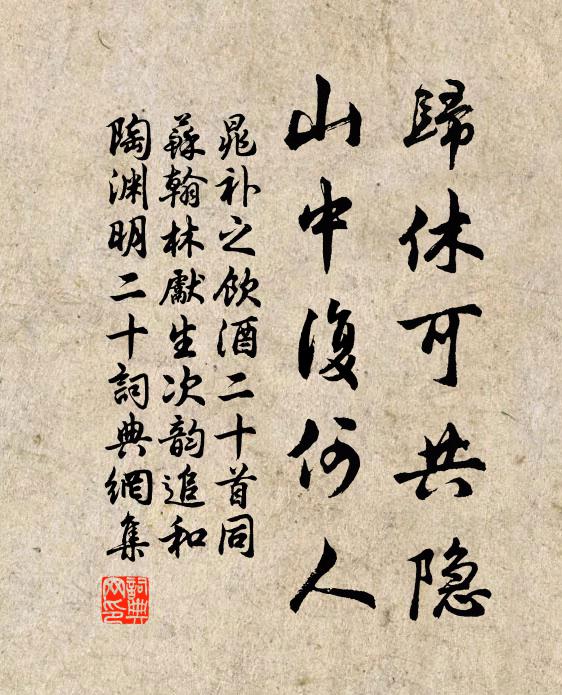 歸休可共隐
山中復何人
晁补之飲酒二十首同
蘇翰林獻生次韵追和
陶渊明二十詞典網集
詞典网印